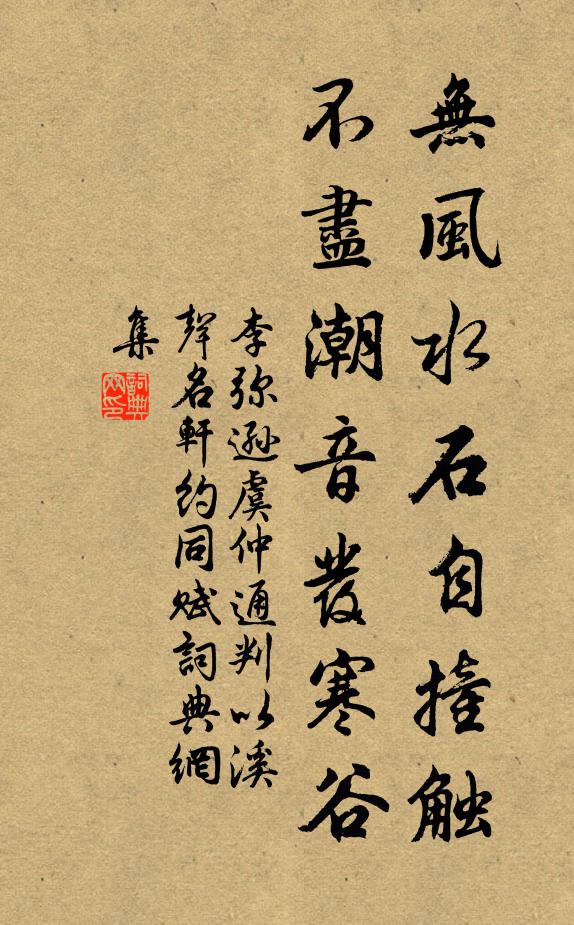 無風水石自撞触
不盡潮音發寒谷
李弥遜虞仲通判以溪
聲名軒約同賦詞典網
集
詞典網印